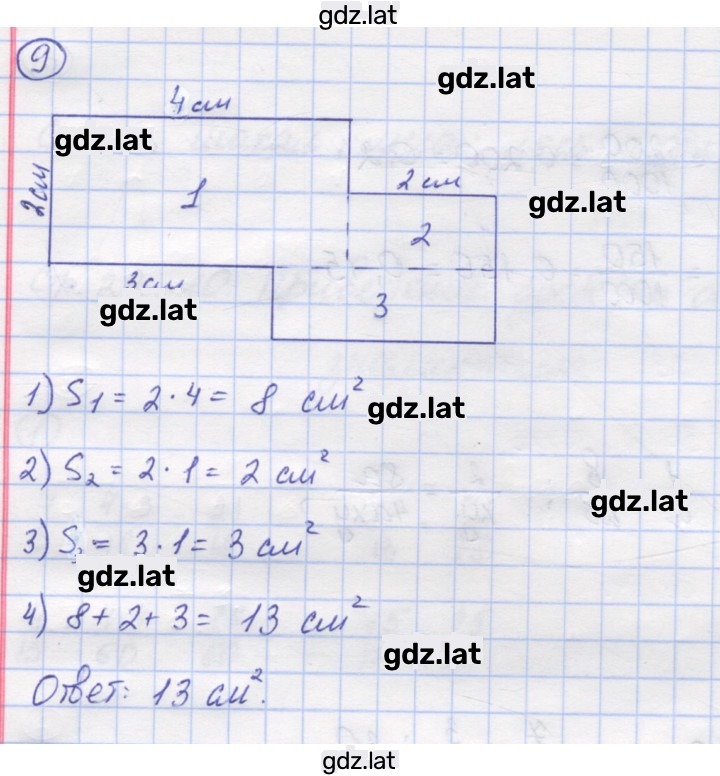 gdz.lat
9
gdz.lat
4 см
gdz.lat
2 см
1
2 см
gdz.lat
2
3 см
gdz.lat
3
1) S₁ = 2 · 4 = 8 см²
gdz.lat
2) S₂ = 2 · 1 = 2 см²
gdz.lat
3) S = 3 · 1 = 3 см²
gdz.lat
4) 8 + 2 + 3 = 13 см²
gdz.lat
Ответ: 13 см².
gdz.lat